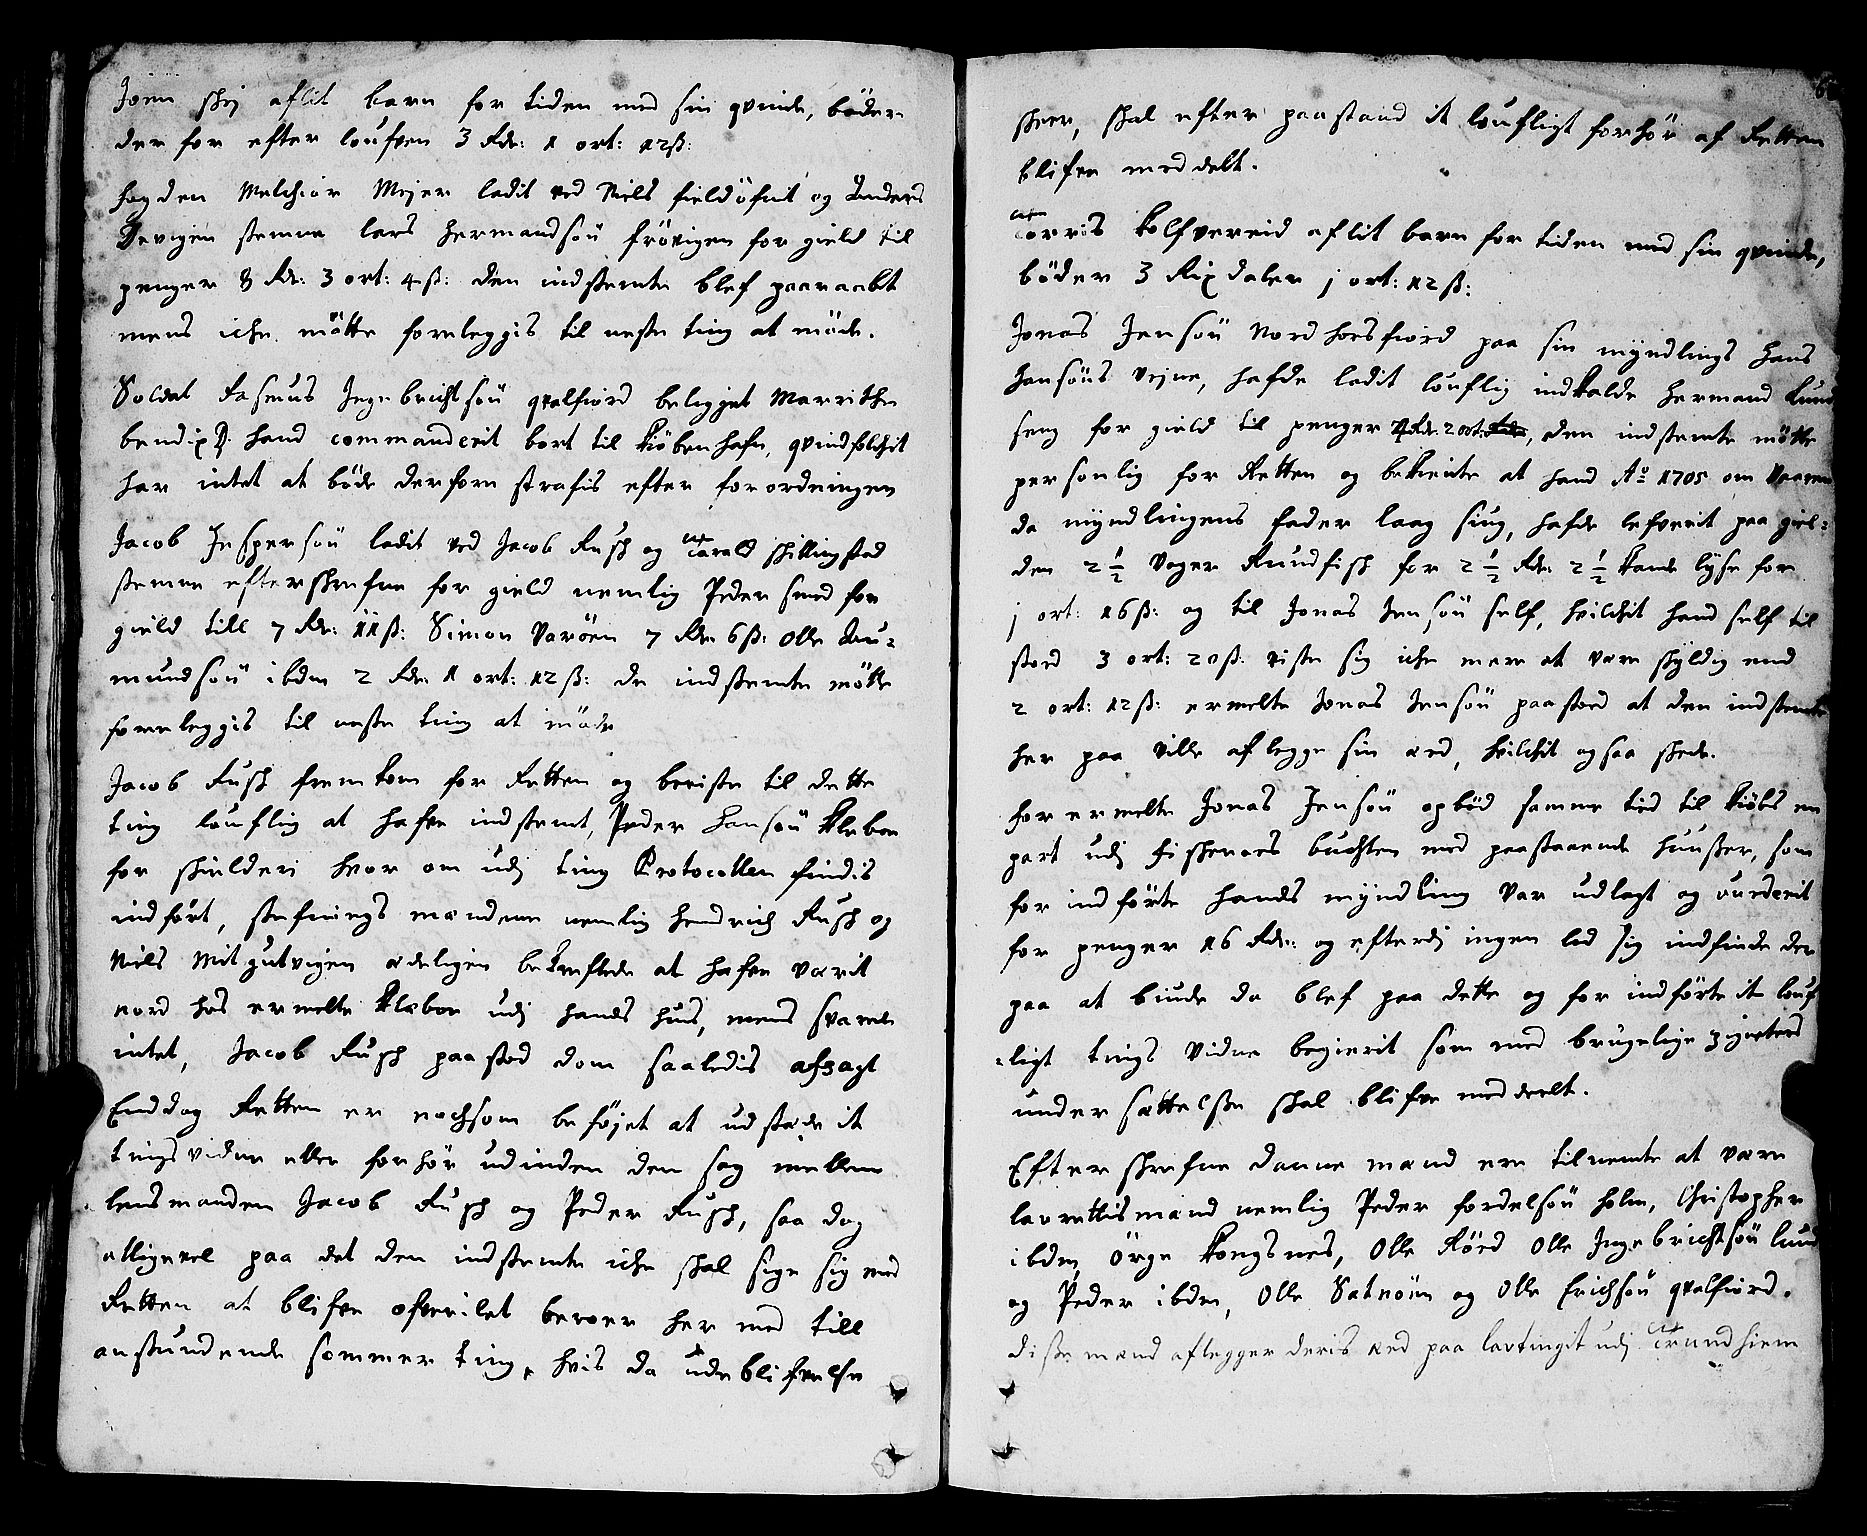 Joen Skej aflit barn for tiden med sin qvinde, böder
der for efter loufven 3 Rdr: 1 ort: 12ß:
hogden Melchior Mejer ladit ved Niels fieldöfnit og Anders
Sevigen stemne lars Hermandsøn frövigen for gield til
penger 8 Rdr: 3 ort: 4ß: den indstemte blef paaraabt
mens iche mötte foreleggis til neste ting at möde.
Soldat Rasmus Ingebrichtsøn qvalfiord beligget Marrithe
bendixD. hand commanderit bort til kiöbenhafn, qvindfolchit
har intet at böde derforre straffis efter forordningen
Jacob Jespersøn ladit ved Jacob Rusk og Tarald skillingstad
stemne efterskrefne for gield nemlig Peder smed for
gield till 7 Rdr: 11ß: Simon Varöen 7 Rdr: 6ß: Olle Am=
mundsøn ibdm 2 Rdr: 1 ort: 12ß: de indstemte mötte
foreleggis til neste ting at möde
Jacob Rusk fremkom for Retten og beviste til dette
ting louflig at hafve indstemt, Peder Hansøn kleboe
for skielderi hvor om udj ting Protocollen findis
indfört, stefnings mændene nemlig Hendrich Rusk og
Niels Mitgutvigen ædeligen bekreftede at hafve værit
nord hos ermelte klæboe udj hands huus, mens svarede
intet, Jacob Rusk paastod dom saaledis afsagt
Enddog Retten er nochsom beföjet at udstæde it
tingsvidne eller forhör udinden den sag mellem
lensmanden Jacob Rusk og Peder Rusk, saa dog
alligevel paa det den indstemte iche skal sige sig med
Retten at blifve ofverilet beroer her med till
anstundende sommer ting, hvis da udeblifvelse
skeer, skal efter paastand it loufligt forhör af Retten
blifve meddelt.
Torris kolfvereid aflit barn for tiden med sin qvinde,
böder 3 Rixdaler j ort: 12ß:
Jonas Jensøn Nordhorsfiord paa sin myndlings Hans
Hansøns vejne, hafde ladit louflig indkalde Hermand Lund
seng for gield til penger 4 Rdr: 2 ort:, den indstemte mötte
personlig for Retten og bekiente at hand Ao 1705 om Vaaren
da myndlingens fader laag siug, hafde lefverit paa giel=
den 2½ Voger Rundfisk for 2½ Rdr: 2½ kande lyse for
j ort: 16ß: og til Jonas Jensøn self, hvilchit hand self til
stod 3 ort: 20ß: viste sig iche mere at være skyldig end
2 ort: 12ß: ermelte Jonas Jensøn paastod at den indstemte
her paa ville aflegge sin æd, hvilchit ogsaa skede.
for ermelte Jonas Jensøn opböd samme tid til kiöbs en
part udj fiskernes buchten med paastaaende huuser, som
for indförte hands myndling var udlagt og vurderit
for penger 16 Rdr: og efterdj ingen lod sig indfinde der
paa at biude da blef paa dette og for indförte it louf
=ligt tings vidne begierit som med brugelige zigneters
undersættelse skal blifve meddeelt.
Efterskrefne danne mænd ere tilnemte at være
laurettismænd nemlig Peder fordelsøn holm, Christopher
ibdm, örge kongsnes, Olle Röed Olle Ingebrichtsøn lund
og Peder ibdm, Olle Satnöen og Olle Erichsøn qvalfiord.
disse mænd aflegger deris æed paa lavtingit udj Trundhiem